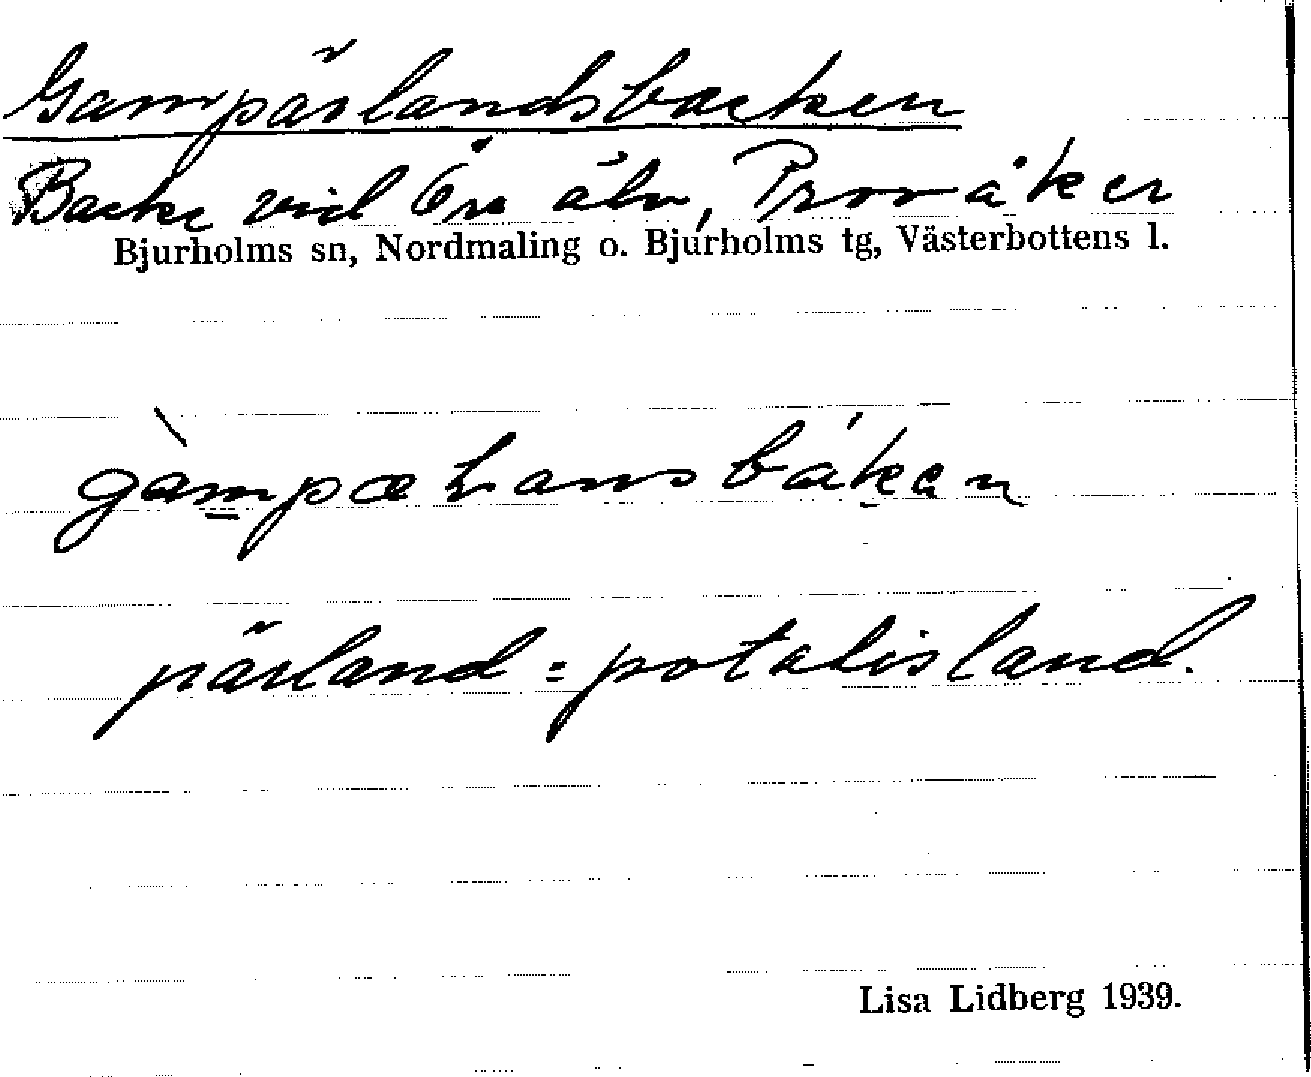 Gampärlandsbacken
Backe vid Öre älv, Provåker
Bjurholms sn, Nordmaling o. Bjurholms tg, Västerbottens l.
pärland = potatisland.
Lisa Lidberg 1939.